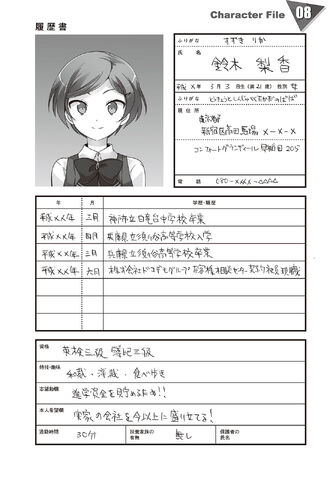 Character File 08
履歴書
ふりがな すずき りか
氏名 鈴木 梨香
平成 X 年 3 月 3 日生(満21歳) 性別 女
ふりがな
現住所 東京都
新宿区高田馬場 X-X-X
コンフォートグランディール早稲田 205
電話 080-XXXX-△△△△
年 月 学歴・職歴
平成 XX年 三月 神戸市立日竜台中学校卒業
平成 XX年 四月 兵庫県立須磨高等学校入学
平成 XX年 三月 兵庫県立須磨高等学校卒業
平成 XX年 六月 株式会社ドコデモグループ 契約社員 現職
資格 英検三級 簿記三級
特技・趣味 和裁・洋裁・食べ歩き
志望動機 進学資金を貯めるため!!
本人希望欄 実家の会社を今以上に盛り立てる!
通勤時間 30分 扶養家族の有無 無し 保護者の氏名